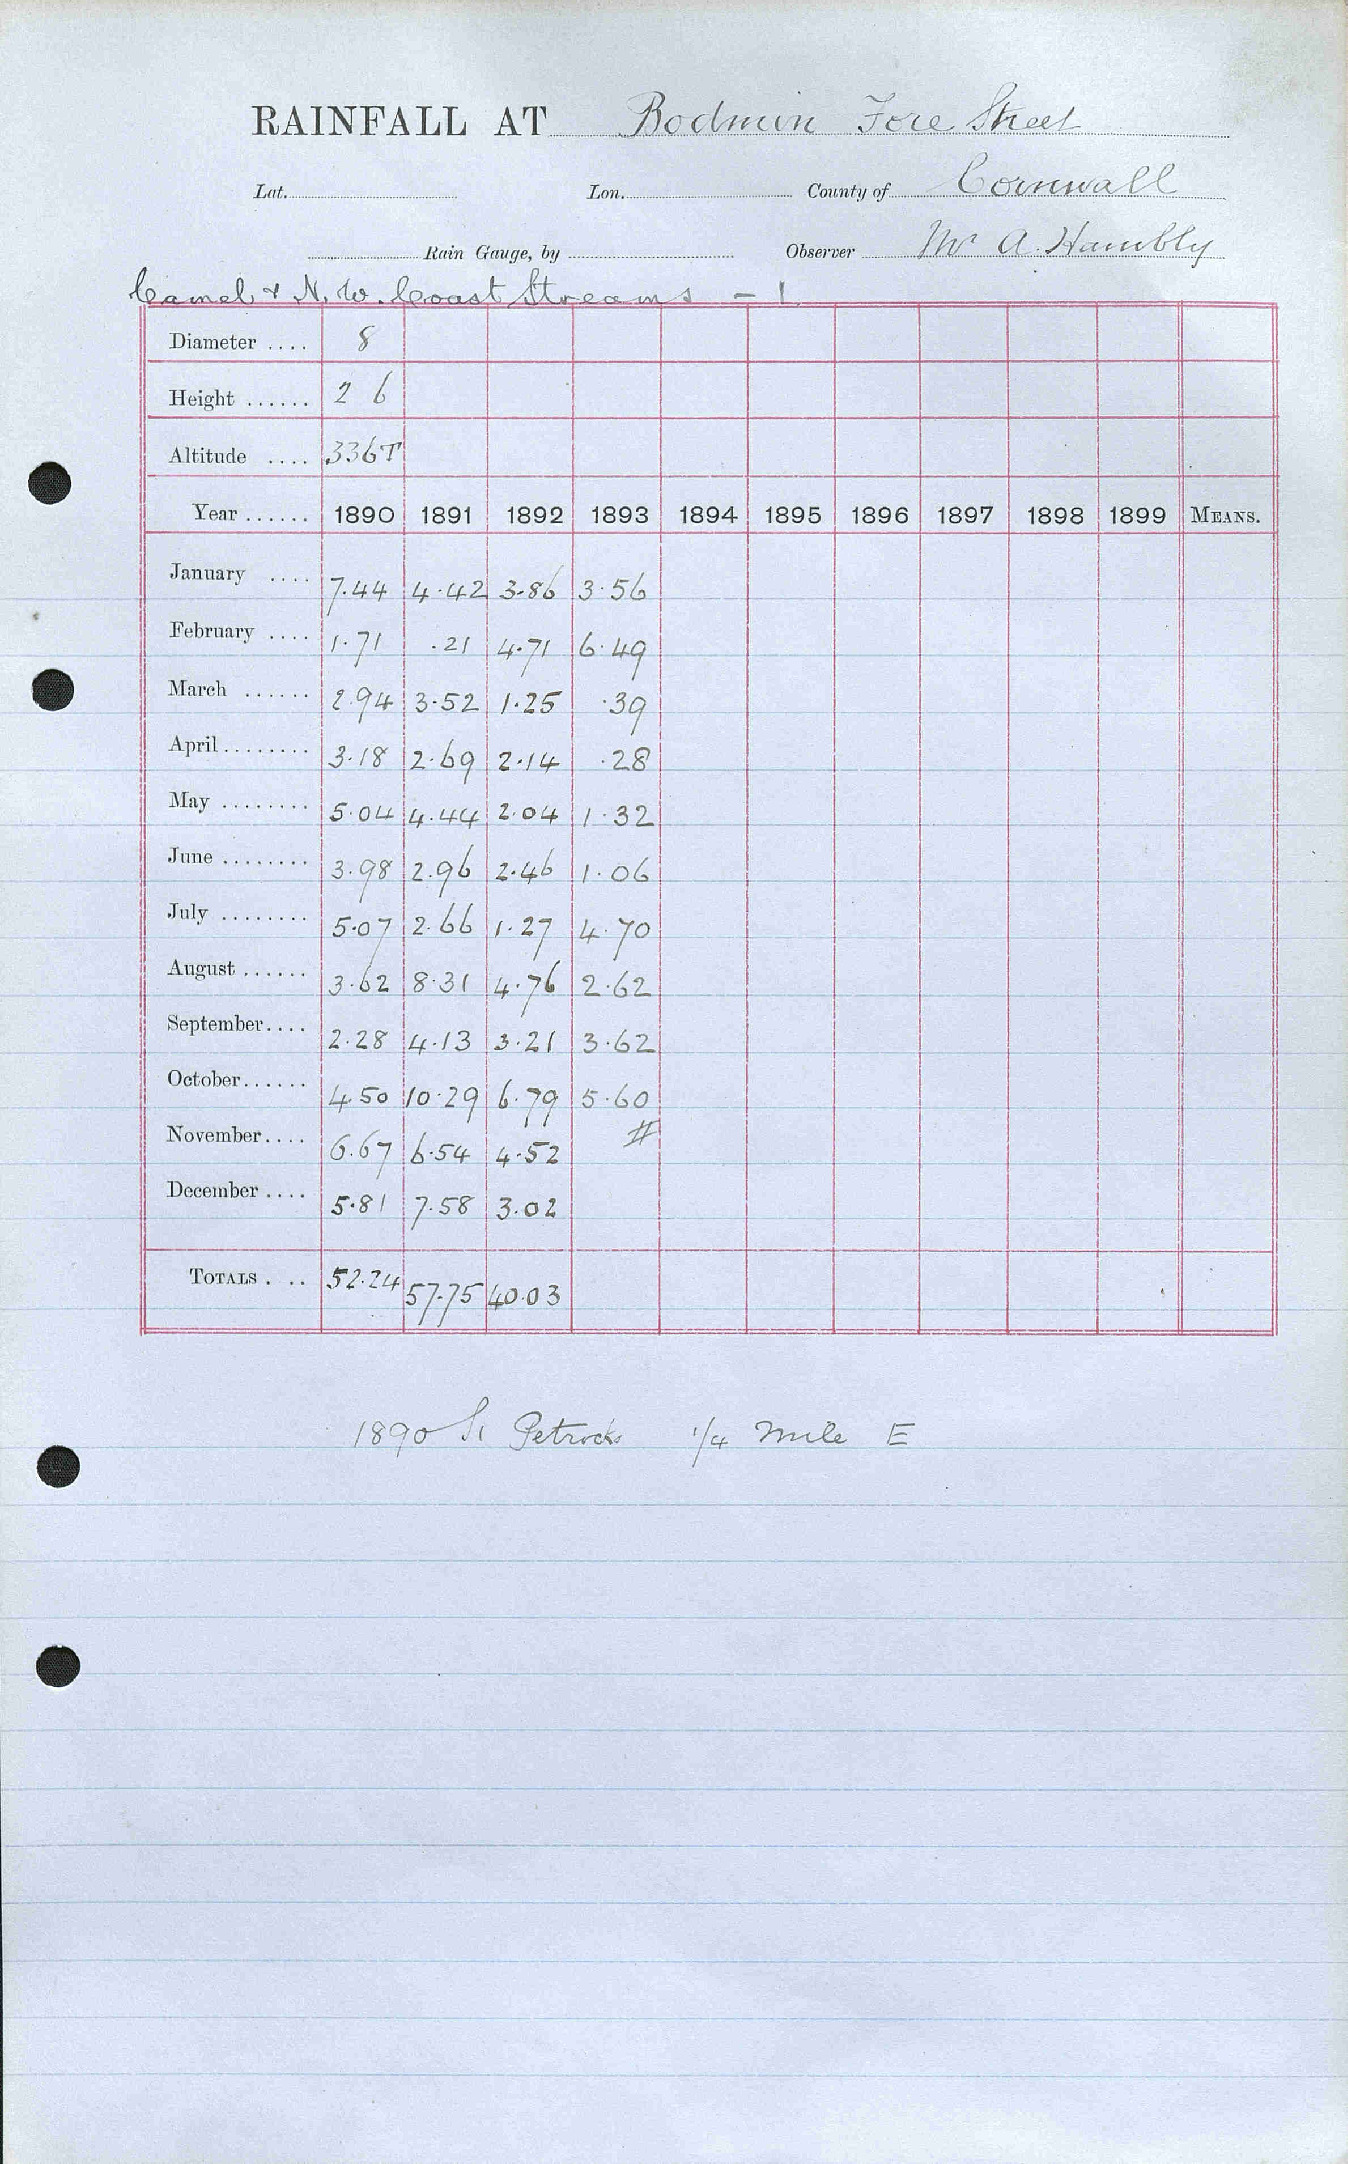 RAINFALL AT Bodmin Fore Street
Lat. Lon. County of Cornwall
Rain Gauge, by Observer Mr A. Hambly
Camel & N. W. Coast Streams - 1
Diameter .... 8
Height ...... 2 6
Altitude .... 336T
Year ...... 1890 1891 1892 1893 1894 1895 1896 1897 1898 1899 MEANS.
January .... 7.44 4.42 3.86 3.56
February .... 1.71 .21 4.71 6.49
March ...... 2.94 3.52 1.25 .39
April ........ 3.18 2.69 2.14 .28
May ........ 5.04 4.44 2.04 1.32
June ........ 3.98 2.96 2.46 1.06
July ........ 5.07 2.66 1.27 4.70
August ...... 3.62 8.31 4.76 2.62
September.... 2.28 4.13 3.21 3.62
October...... 4.50 10.29 6.79 5.60
November.... 6.67 6.54 4.52 #
December .... 5.81 7.58 3.02
TOTALS . .. 52.24 57.75 40.03
1890 St Petrocks 1/4 Mile E